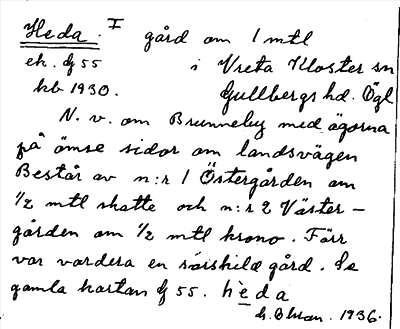 Heda. I gård om 1 mtl
ek. bl 55 i Vreta Kloster sn
kb 1930. Gullbergs hd. Ögl
N. v. om Brunneby med ägorna
på ömse sidor om landsvägen
Består av n:r 1 Östergården om
1/2 mtl skatte och n:r 2 Väster-
gården om 1/2 mtl krono. Förr
var vardera en särskild gård. Se
gamla kartan bl 55. hèda
1936.